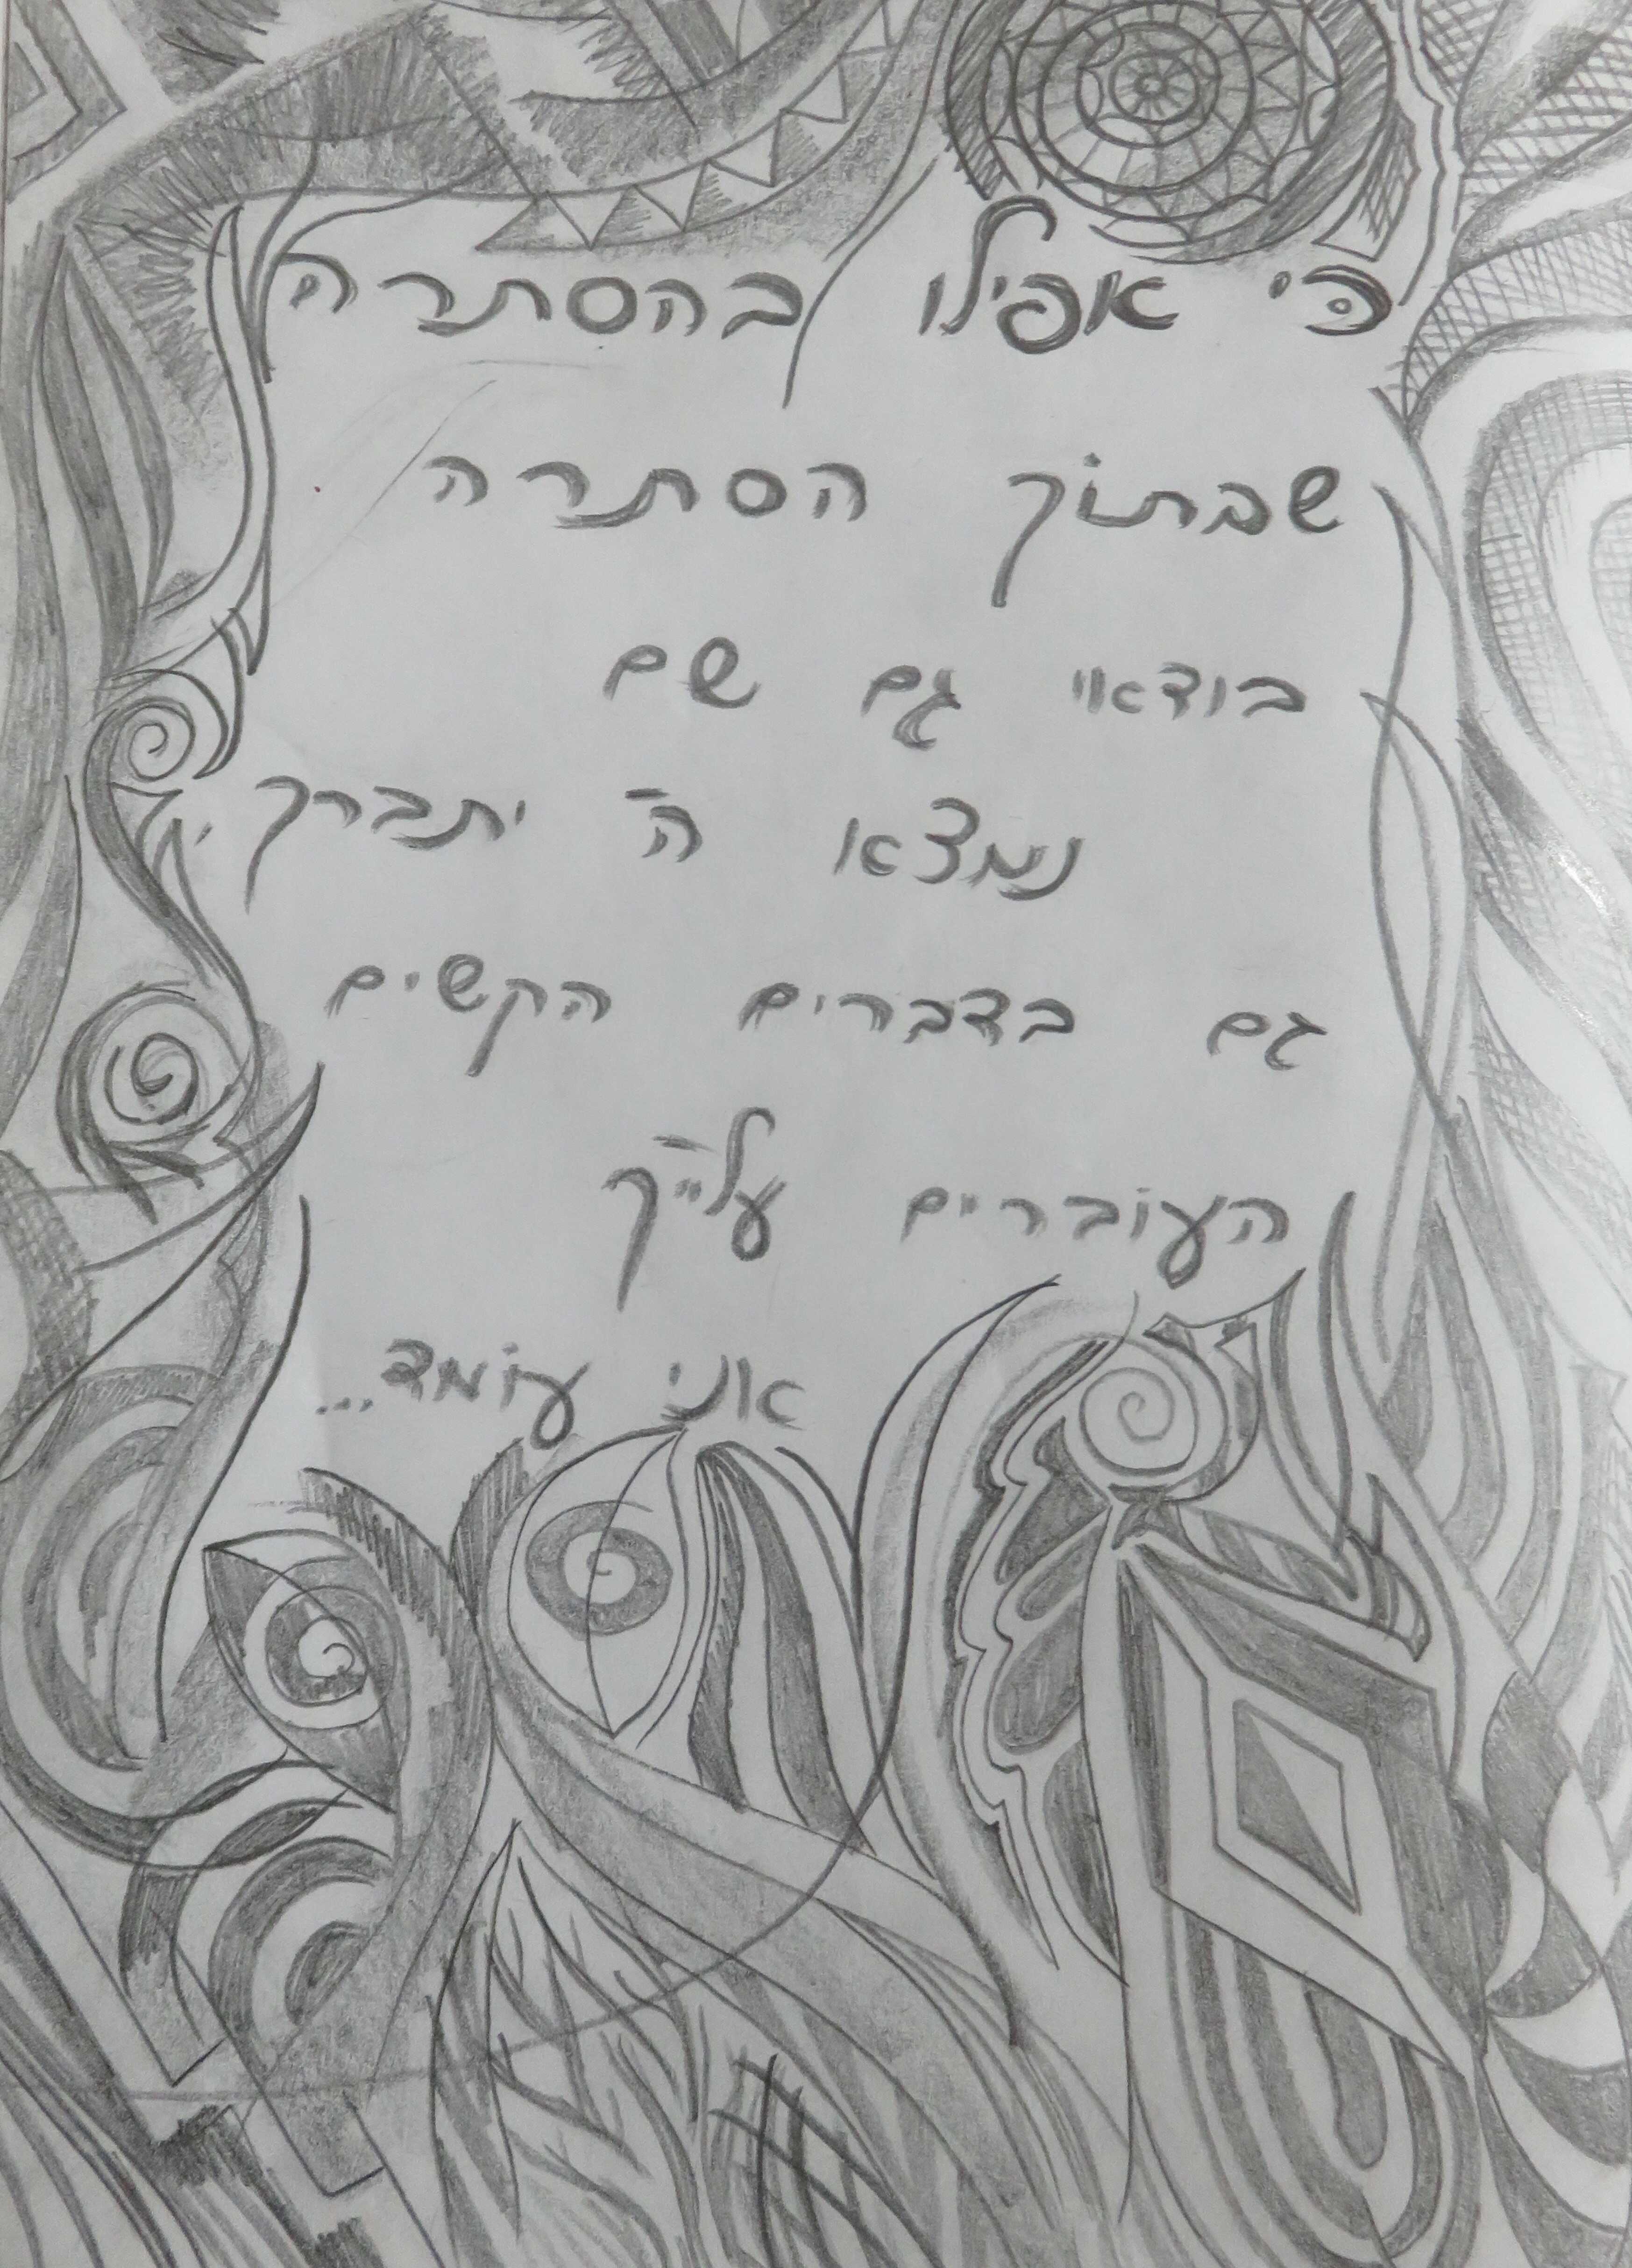 כי אפילו בהסתרה
שבתוך הסתרה
בודאי גם שם
נמצא ה' יתברך
גם בדברים הקשים
העוברים עלייך
אני עומד...